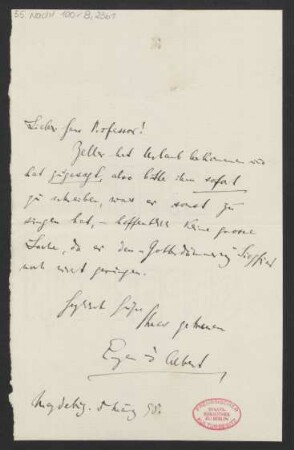 55 Nachl 100 / B,
Lieber Herr Professor!
Zeller hat Urlaub bekommen und
hat zugesagt, also bitte ihm sofort
zu schreiben, was er sonst zu
singen hat, – hoffentlich keine grosse
Sache, da er den „Götterdämmerung" Siegfried
noch nicht gesungen.
Herzlich Grüße
Ihres getreuen
Eugen d'Albert
Magdeburg. März 98.
PREUSSISCHER
STAATS-
BIBLIOTHEK
ZU BERLIN
KULTURBESITZ